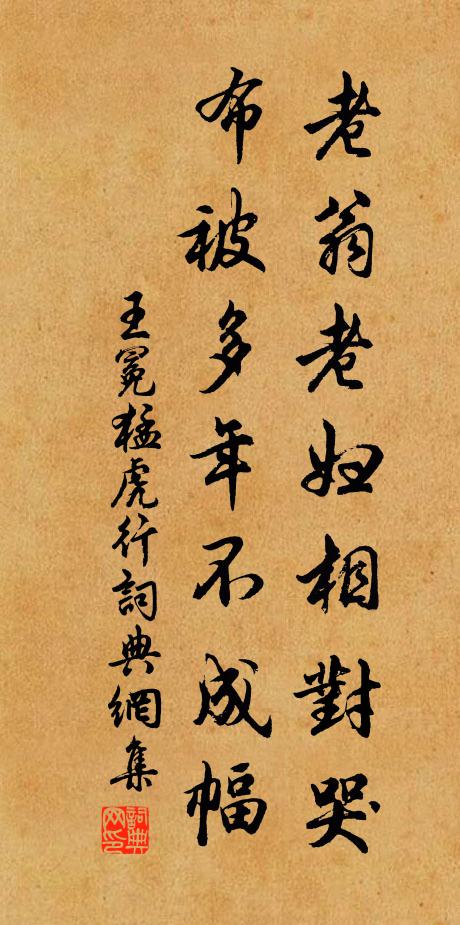 老翁老妇相對哭
布被多年不成幅
王冕猛虎行詞典網集
詞典网印